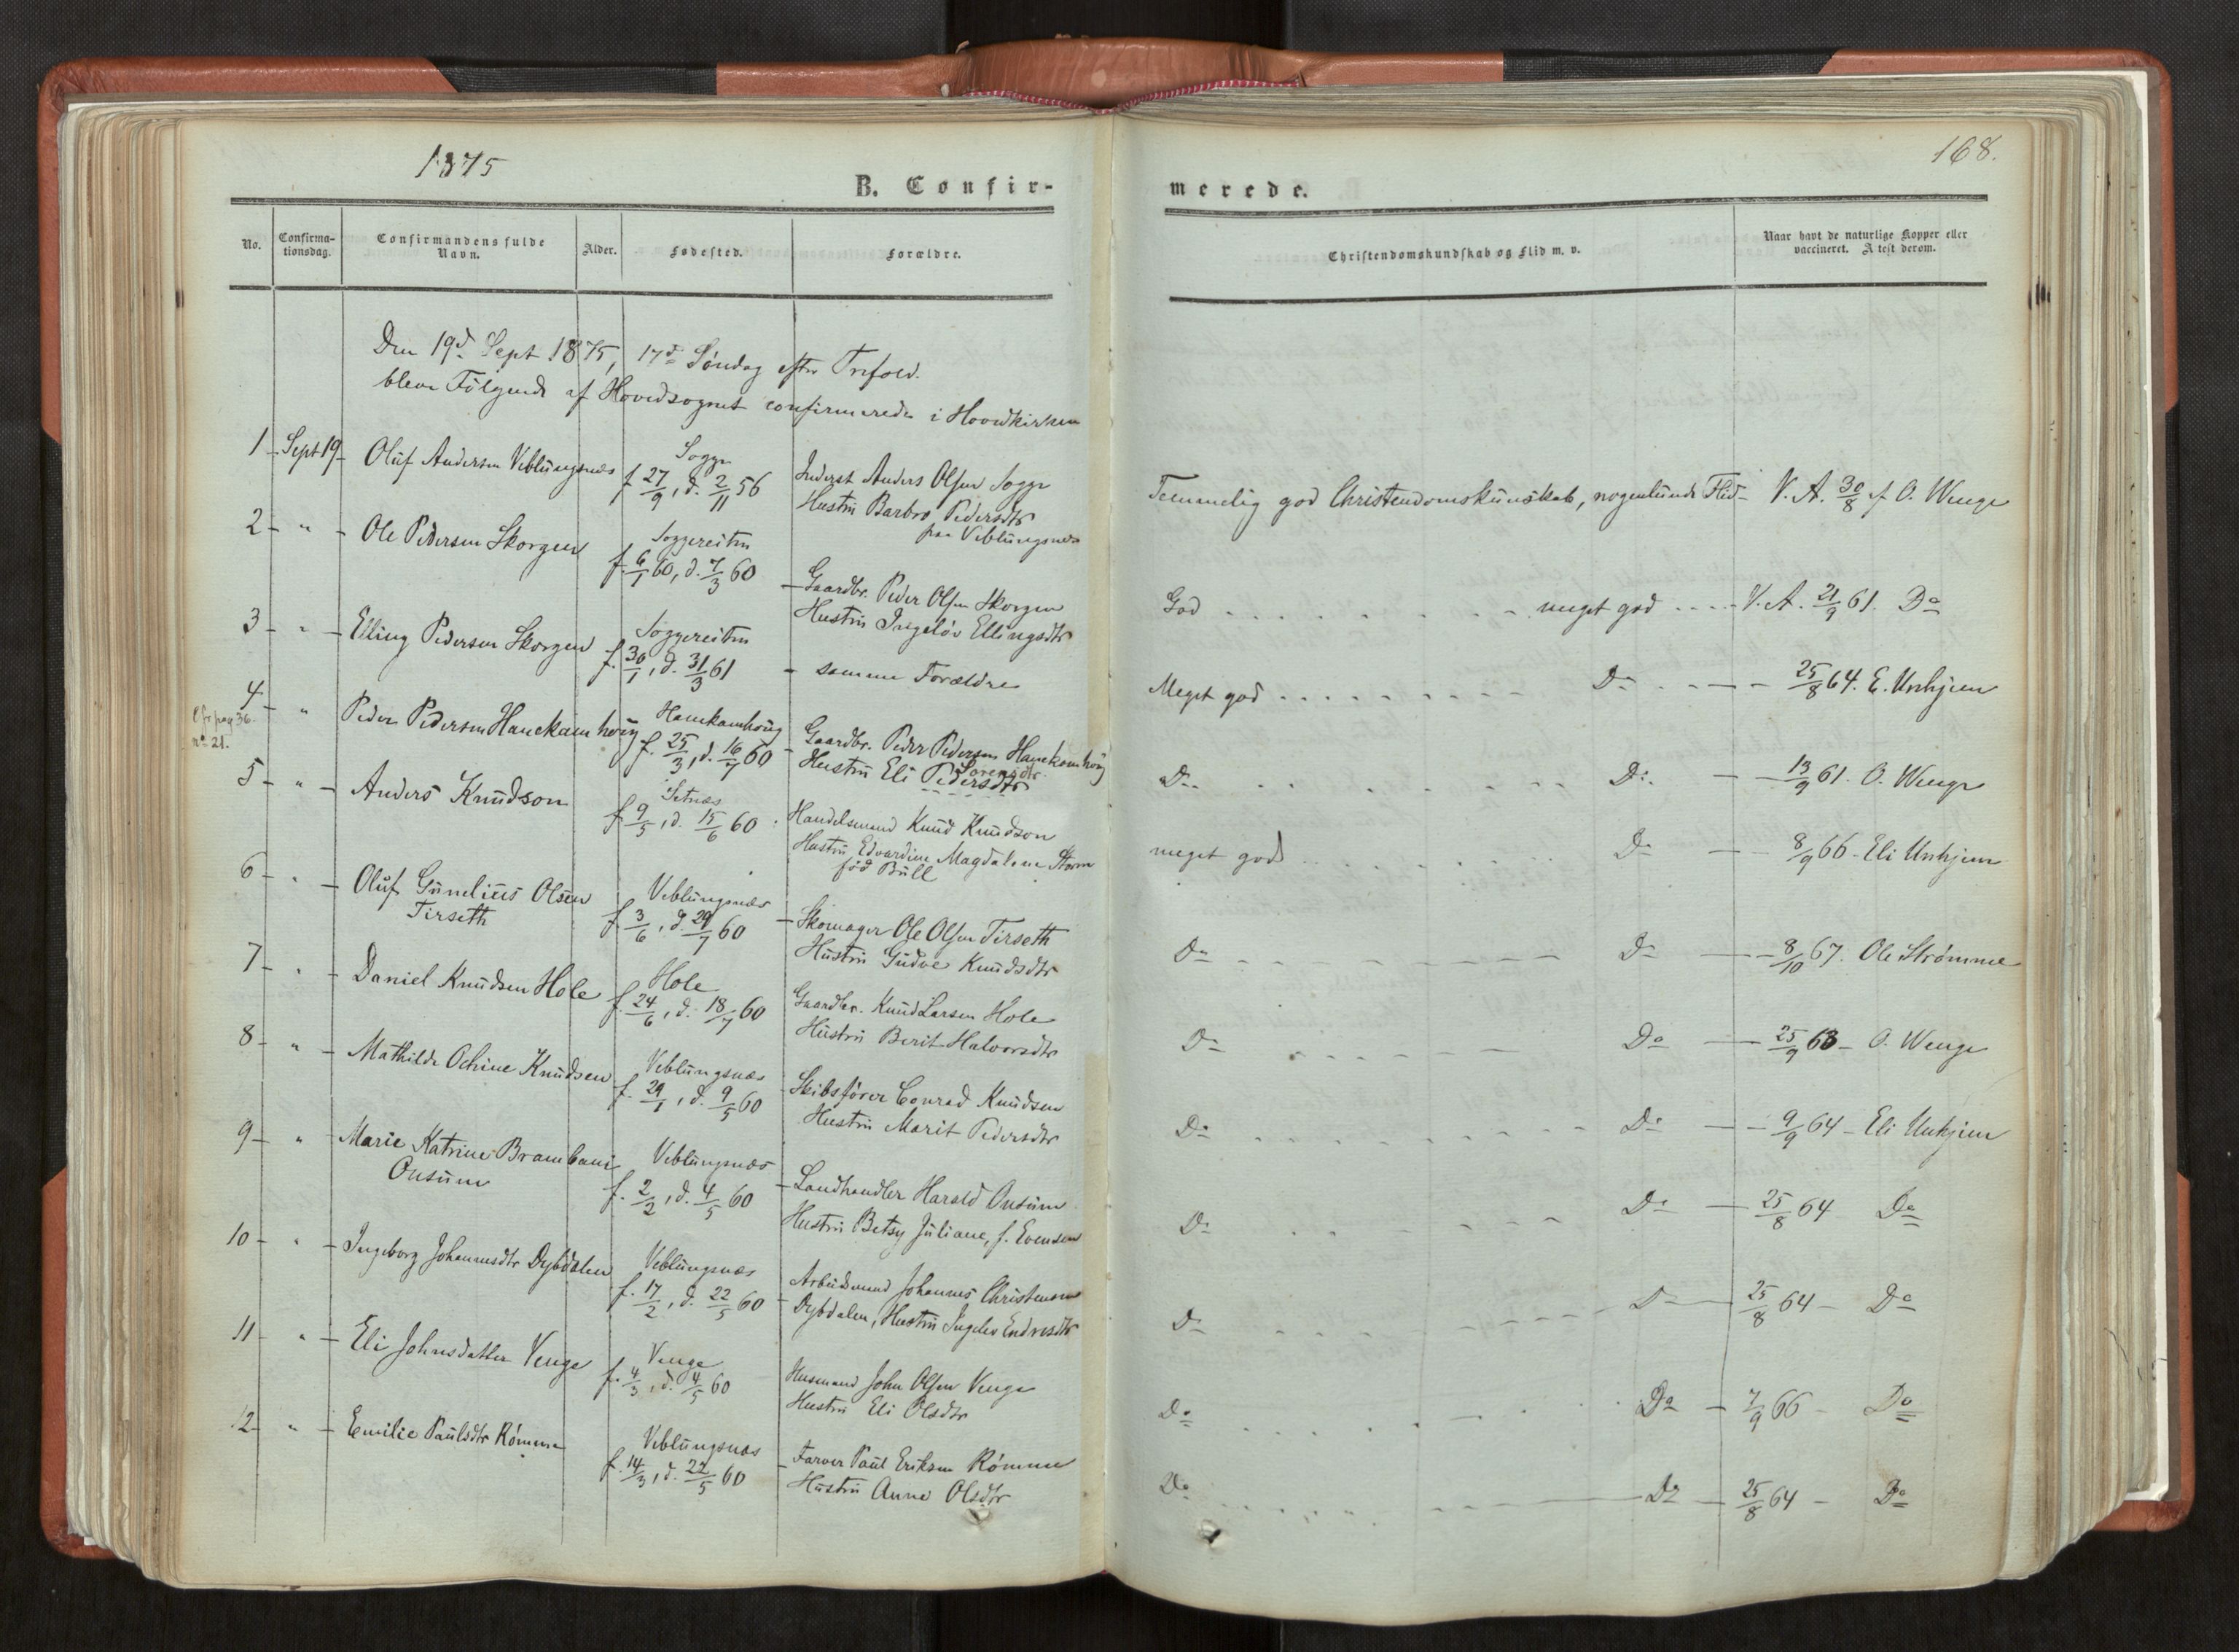 1875
168.
B. Confir-
merede.
No.
Confirma-
tionsdag.
Confirmandens fulde
Navn.
Alder.
Fødested.
Forældre.
Christendomskundskab og Flid m. v.
Naar havt de naturlige Kopper eller
vaccineret. Attest derom.
Den 19d Sept 1875, 17de Søndag efter Trefold.
bleve Følgende af Hovedsognet confirmerede i Hovedkirken
1 - Sept 19 - Oluf Andersen Veblungsnes
Sogge
f 27/9, d. 2/11 56
Inderst Anders Olsen Sogge
Hustru Barbro Pedersdtr
fra Veblungsnes
Temmelig god Christendomskundskab, nogenlunde Flid - V. A. 30/8 af O. Wenge
2 - " - Ole Pedersen Skorgen
Soggereiten
f. 6/1 60, d. 7/3 60
- Gaardbr. Peder Olsen Skorgen
Hustru Ingeløv Ellingsdtr
God - meget god - V. A. 21/9 61. Do
3 - " - Elling Pedersen Skorgen
Soggereiten
f. 30/1, d. 31/3 61
- samme Forældre
Meget god - Do - 25/8 64. E. Unhjem
4 "
Cfr pag 36.
no 21.
Peder Pedersen Hanekamhoug
Hanekamhoug
f. 25/3, d. 16/7 60
- Gaardbr. Peder Pedersen Hanekamhoug
Sørensdtr.
Hustru Eli Pedersdtr
Do - Do - 13/9 61. O. Wenge
5 - " - Anders Knudson
Setnæs
f. 9/5, d. 15/6 60
Handelsmand Knud Knudson
Hustru Edvardine Magdalene Storm
fød Bull
meget god - Do - 8/9 66 - Eli Unhjem
6 - " - Oluf Gunelius Olsen
Tirseth
Veblungsnes
f. 3/6, d. 29/7 60
- Skomager Ole Olsen Tirseth
Hustru Gudve Knudsdtr
Do - Do - 8/10 67. Ole Strømme
7 - " - Daniel Knudsen Hole
Hole
f. 24/6, d. 18/7 60
Gaardbr. Knud Larsen Hole
Hustru Berit Halvorsdtr
Do - Do - 25/9 63 - O. Wenge
8 - " - Mathilde Ochine Knudsen
Veblungsnæs
f. 29/1, d. 9/5 60
- Skibsfører Conrad Knudsen
Hustru Marit Pedersdtr
Do - Do - 9/9 64 - Eli Unhjem
9 - " - Marie Katrine Brambani
Onsum
Veblungsnæs
f. 2/2, d. 4/5 60
- Landhandler Harald Onsum
Hustru Betsy Juliane, f. Evensen
Do - Do - 25/8 64 Do
10 - " - Ingeborg Johannesdtr Dybdalen
Veblungsnæs
f. 17/2, d. 22/5 60
Arbeidsmand Johannes Christensen
- Dybdalen, Hustru Ingelev Endresdtr
Do - Do - 25/8 64 - Do
11 - " - Eli Johnsdatter Venge
Venge
f. 4/3, d. 4/5 60
Husmand John Olsen Venge
Hustru Eli Olsdtr
Do - Do - 7/9 66 - Do
12 - " - Emilie Paulsdtr Rømme
Veblungsnæs
f. 14/3, d. 22/5 60
- Farver Paul Eriksen Rømme
Hustru Anne Olsdtr
Do - Do - 25/8 64 - Do